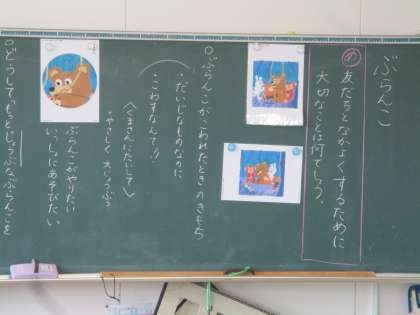 ぶらんこ
め 友だちとなかよくするために
大切なことは何でしょう。
○ぶらんこがこわれたときのきもち
・だいじなものなのに
・こわすなんて!!
〈くまさんにたいして〉
・やさしく 大じょうぶ?
ぶらんこがやりたい
いっしょにあそびたい
○どうして、もっとじょうぶなぶらんこを